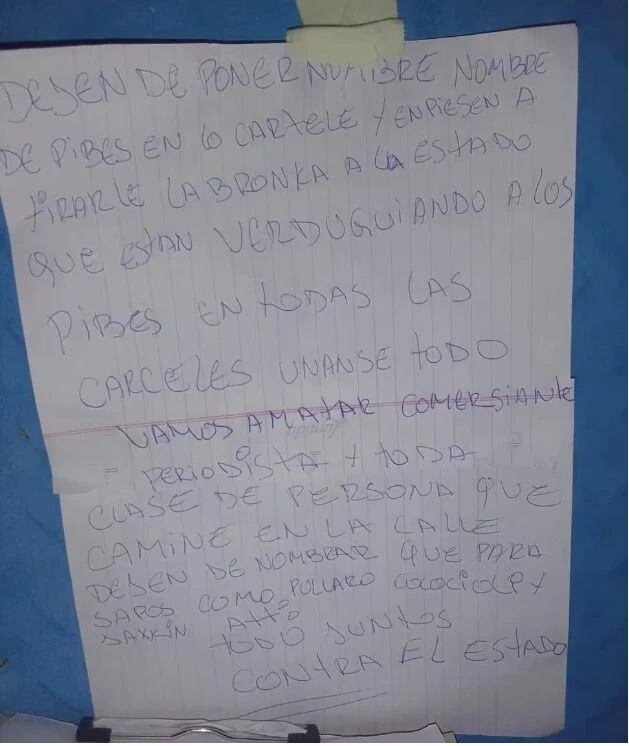 DEJEN DE PONER NUMIBRE NOMBRE
DE PIBES EN LO CARTELE Y ENPIESEN A
TIRARLE LA BRONKA A La ESTADO
QUE ESTAN VERDUGUIANDO A LOS
PIBES EN TODAS LAS
CARCELES UNANSE TODO
VAMOS A MATAR COMERSIANTE
PERIODISTA Y TODA
CLASE DE PERSONA QUE
CAMINE EN LA CALLE
DEJEN DE NOMBRAR QUE PARA
SAPOS COMO PULLARO COCOCIOCY
JAXKIN ATTO
TODO JUNTOS
CONTRA EL ESTADO